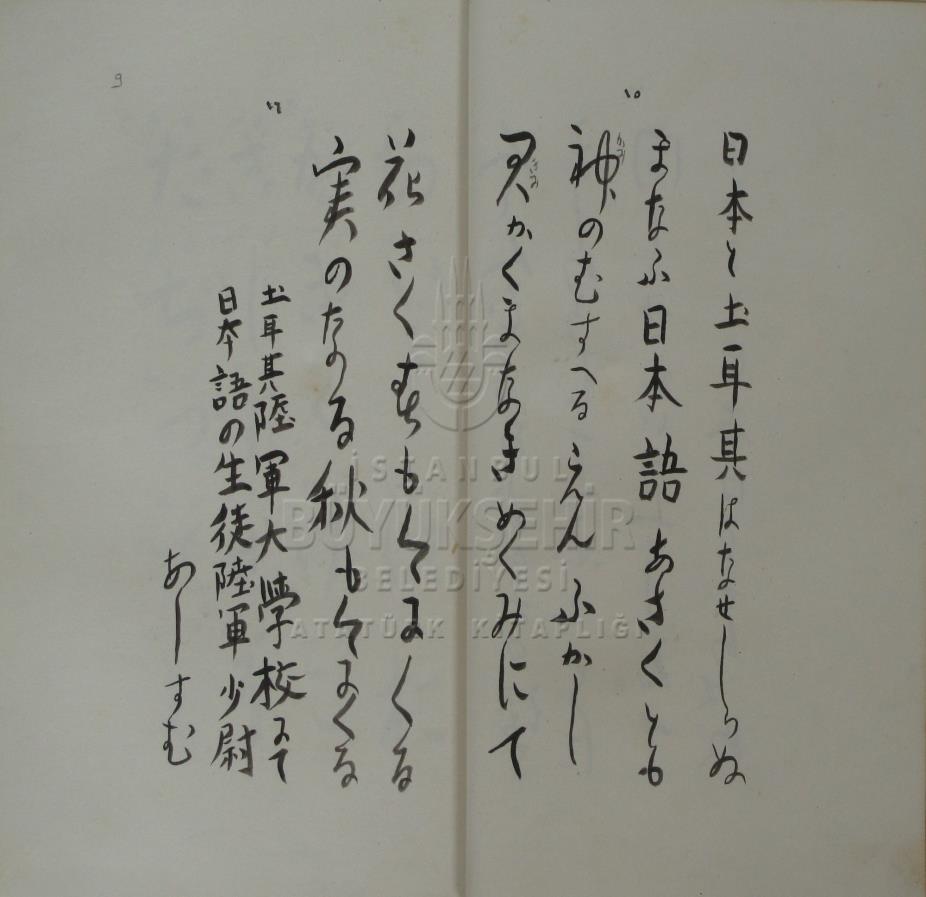 9
١٠
日本と土耳其はなせしらぬ
まなふ日本語あさくとも
神のむすへるえんふかし
かみ
君かくまなきめくみにて
きみ
花さく春も くる
実のなる秋も くる
土耳其陸軍大學校にて
日本語の生徒陸軍少尉
あーすむ
İSTANBUL
BÜYÜKŞEHİR
BELEDİYESİ
ATATÜRK KİTAPLIĞI